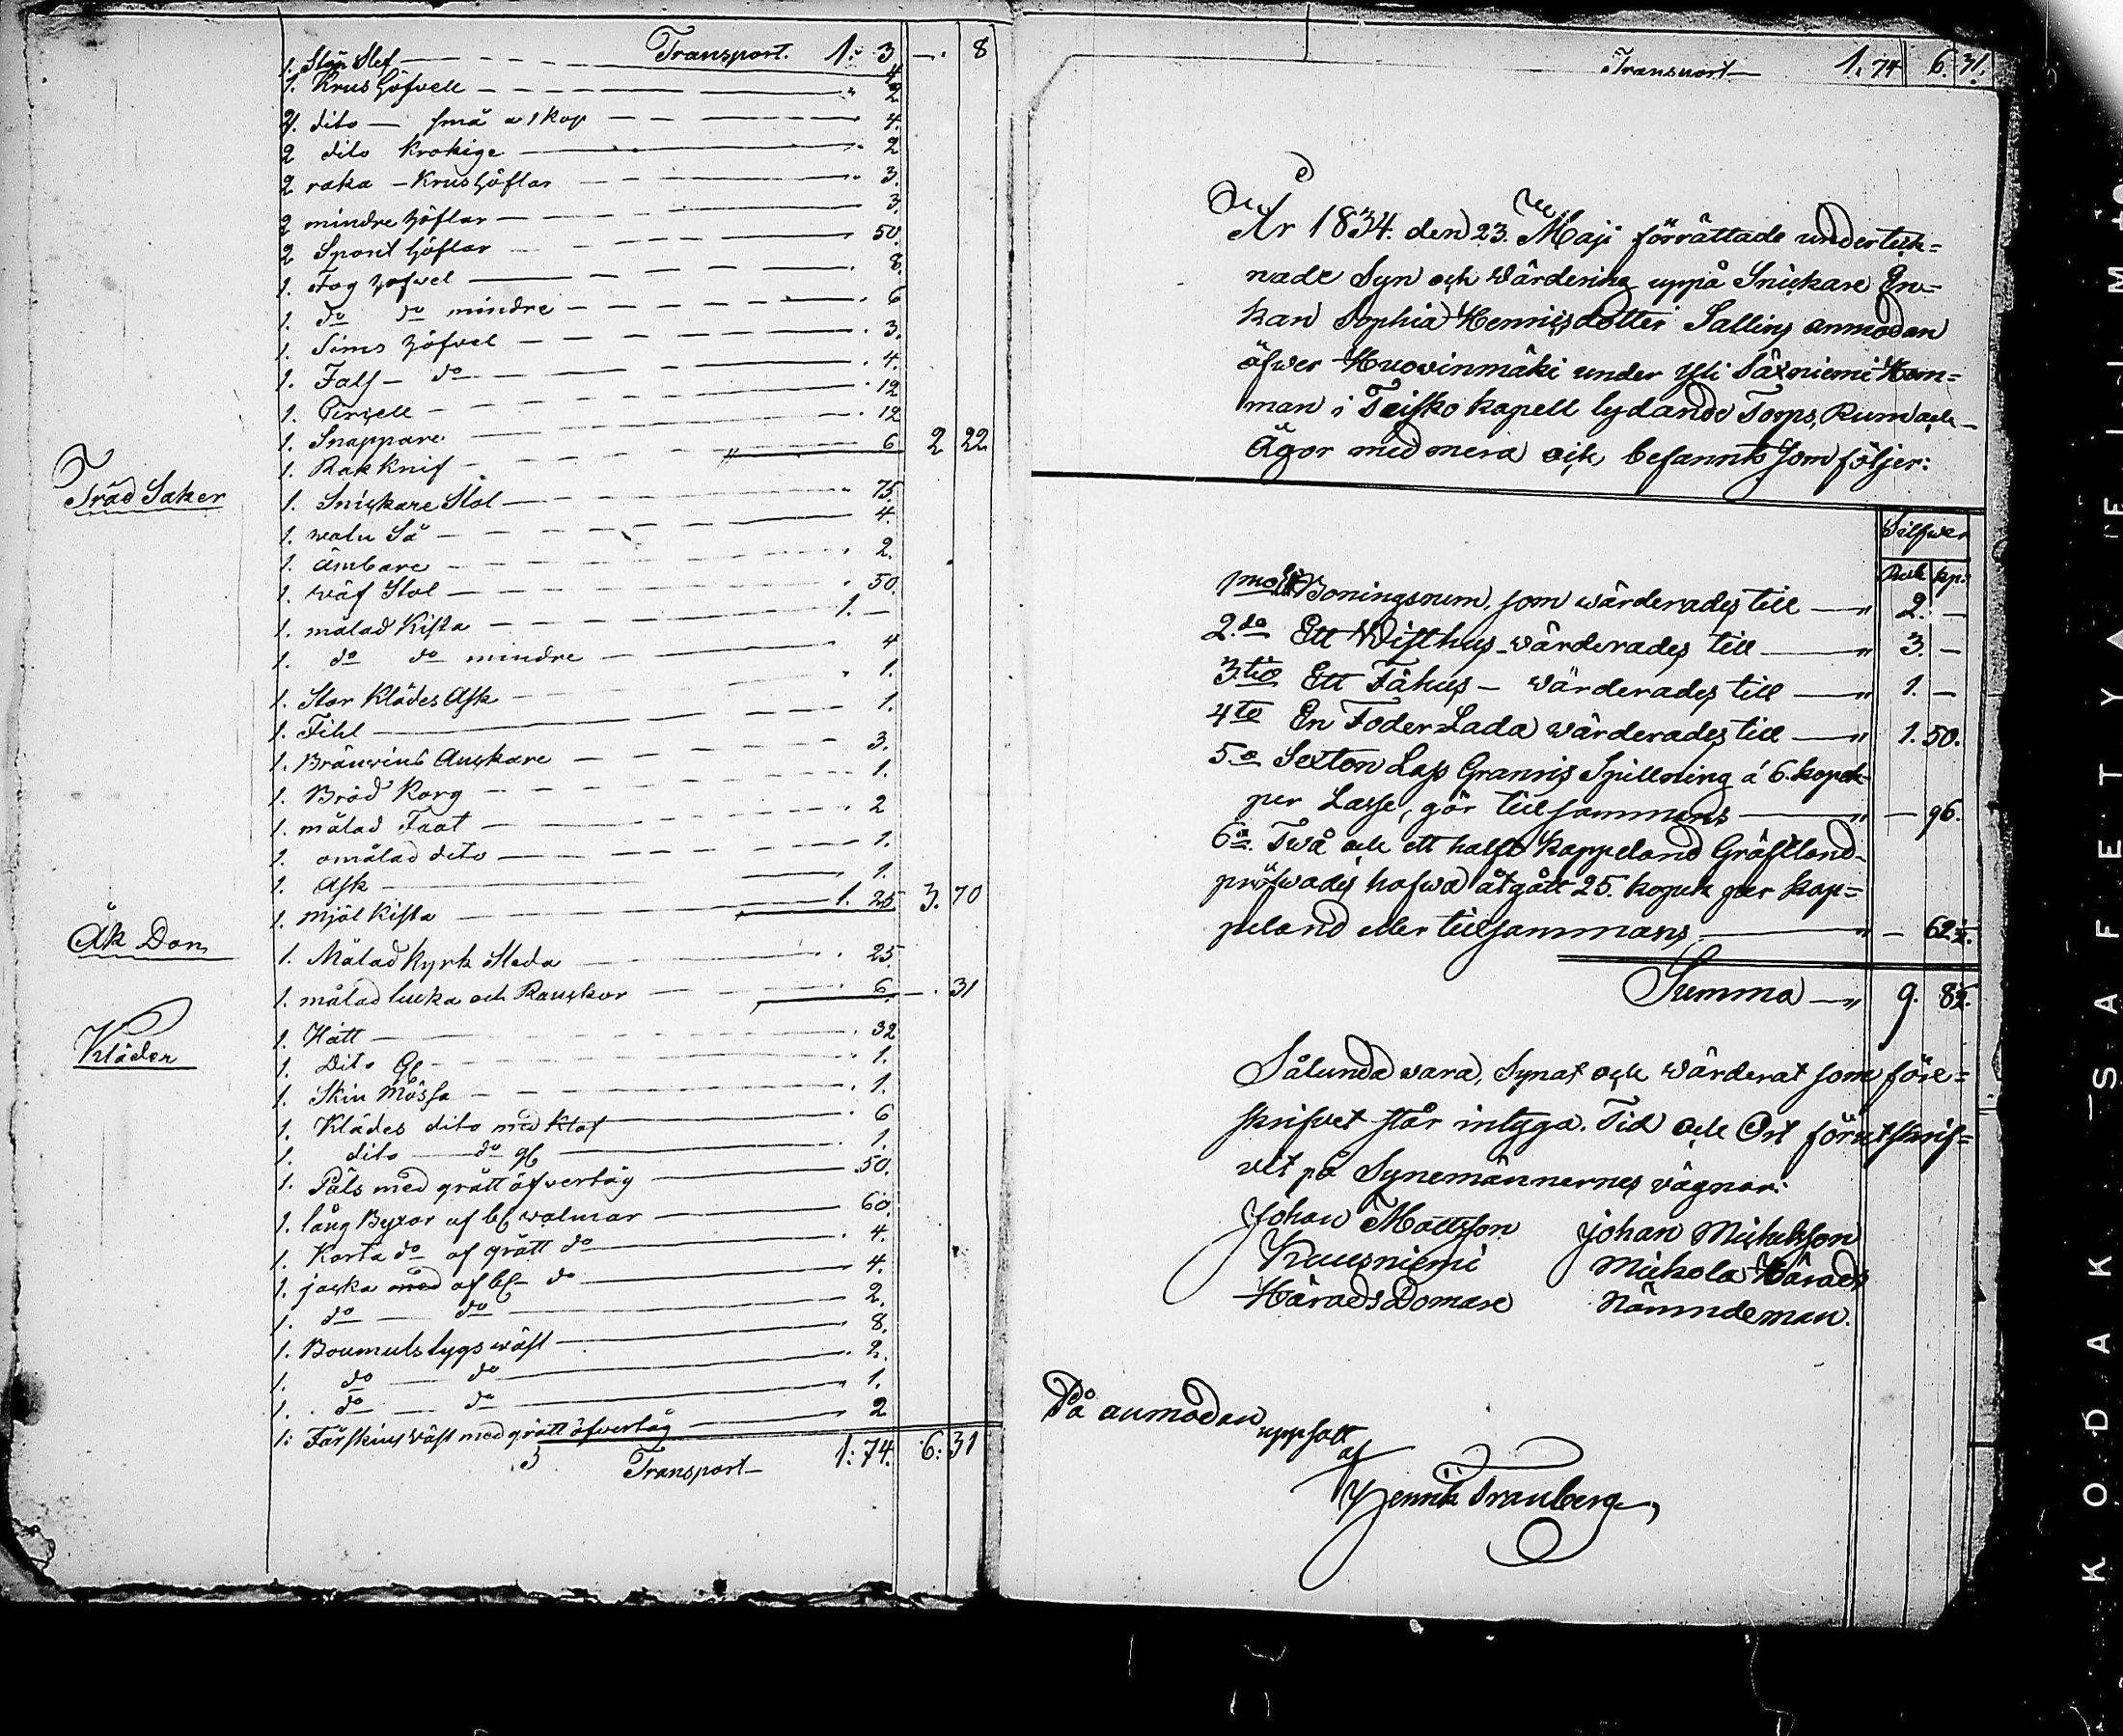 Transport. 1. 3 — 8
1. Slip Slef — 4
1. Krushöfvell — 2
2. dito — små a 1 kop — 4.
2 dito Krokige — 2
2 raka Krushöflar — 3.
2 mindre höflar — 3.
2 Spont höflar — 50.
1. Fog höfvel — 8.
1. do do mindre — 6
1. Sims höfvel — 3.
1. Fals do — 4.
1. Cirkell — 12
1. Snappare — 12
1. Rak Knif — 6 2 22
Träd Saker
1. Snickare Stol — 75.
1. Så — 4.
1. ämbare — 2.
1. wäf Stol — 50.
1. målad Kista — 1. —
1. do do mindre — 4
1. Stor Klädes Ask — 1.
1. — 1.
1. Bränvins Anckare — 3.
1. Bröd Korg — 1.
1. målad Faat — 2
1. omålad dito — 1.
1. Ask — 1.
1. mjöl Kista — 1. 25 3. 70
Åk Don
1. Målad Kyrk Släda — 25.
1. målad lucka och — 6. — 31
Kläder
1. Hatt — 32
1. Dito gl — 1.
1. Skin Mössa — 1.
1. Klädes dito med — 6
1. dito do gl — 1.
1. Päls med grått öfvertåg — 50.
1. lång Byxor af bl walmar — 60.
1. Korta do af grått do — 4.
1. jacka med af bl do — 4.
1. do do — 2.
1. Boumulstygs wäst — 8.
1. do do — 2.
1. do do — 1.
1. Fårskins Wäst med grått öfvertåg — 2
Transport 1: 74. 6: 31
Transport 1. 74 6. 31.
År 1834. den 23. Maji förrättade underteck=
nade Syn och Värdering uppå Snickare En=
kan Sophia Henricsdotter Sallins anmodan
öfwer Huovinmäki under Yli Säxniemi Hem=
man i Teisko kapell lydande Torps, Rum och
Ägor med mera och befannts som följer:
Silfwer
Rub kp:
1mo Boningsrum, som wärderades till — " 2. —
2.do Ett Wisthus wärderades till — " 3. —
3.tio Ett Fähus — Wärderades till — " 1. —
4to En Foder Lada wärderades till — " 1. 50.
5o Sexton Lass Granris Spillning á 6. kopek
per Lasse, gör tillsammans — " — 96.
6o. Twå och ett halft kappeland Gräftland
pröfwades hafwa åtgått 25. kopek per kap=
peland eller tillsammans — " — 62½.
Summa — " 9. 8½.
Sålunda wara, Synat och Wärderat som före=
skrifvet står intyga. Tid och Ort förutskrif=
vit på Synemännernes vägnar:
Johan Mattsson Johan Michelsson
Kuusniemi Mickola Härads
Härads Domare Nämndeman.
På anmodan
uppsatt
af
Henrik Tranberg
KODAK SAFETY FILM